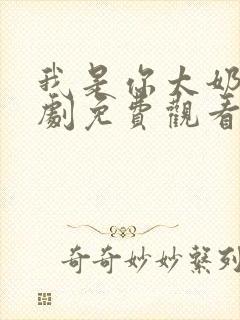 我是你大奶
劇免費觀看
奇奇妙妙繫列